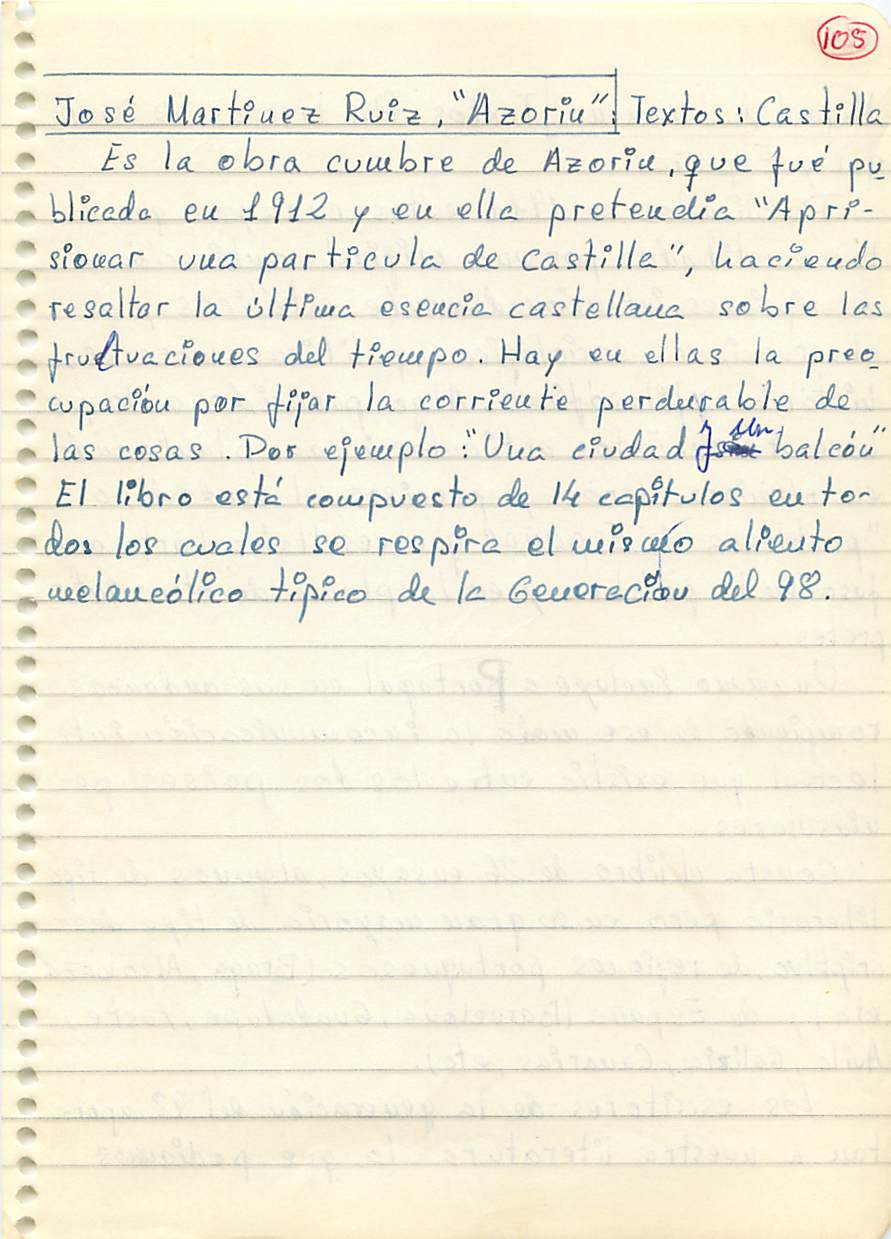 105
José Martinez Ruiz, "Azorin": Textos: Castilla
Es la obra cumbre de Azorin, que fué pu
blicada en 1912 y en ella pretendía "Apri-
sionar una particula de Castilla", haciendo
resaltar la última esencia castellana sobre las
fructuaciones del tiempo. Hay en ellas la preo
cupación por fijar la corriente perdurable de
las cosas. Por ejemplo: "Una ciudad y un balcón"
El libro está compuesto de 14 capítulos en to-
dos los cuales se respira el mismo aliento
melancólico típico de la Generación del 98.